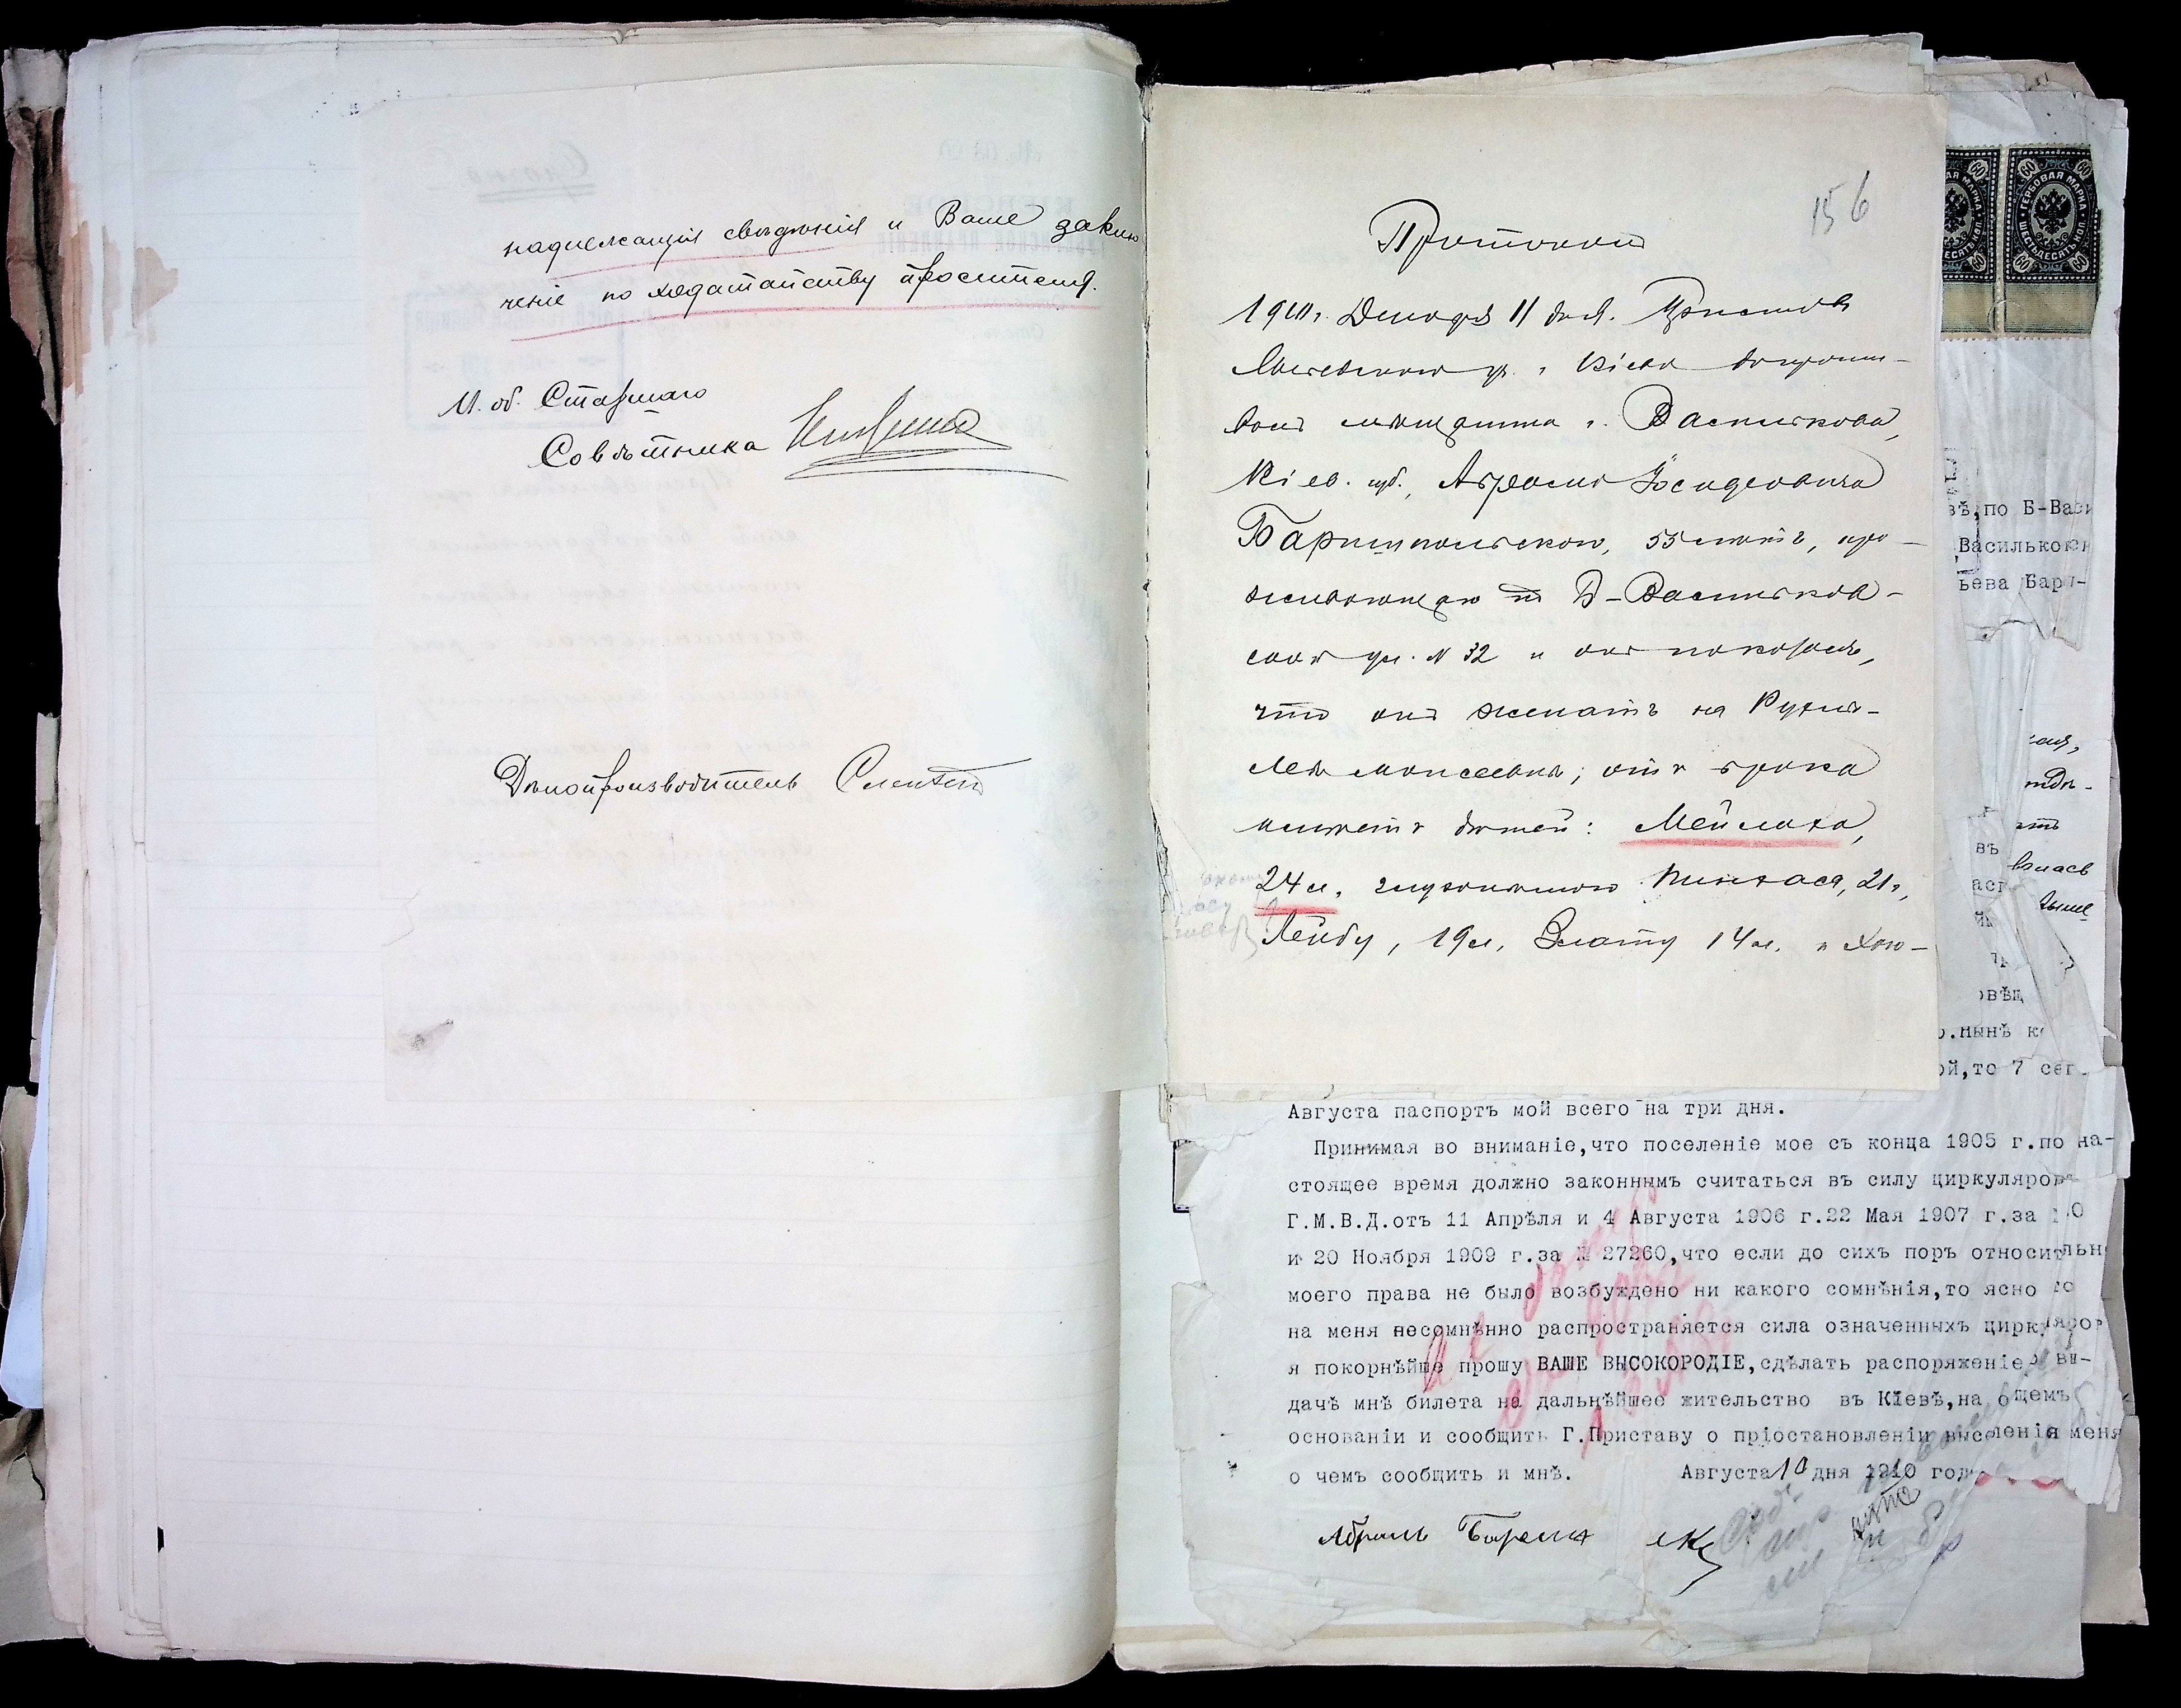 надлежащія свѣдѣнія и Ваше заклю
ченіе по ходатайству просителя.
И. об. Старшаго
Совѣтника
Дѣлопроизводитель
156
Протоколъ
1910 г. Декабря 11 дня. Приставъ
Лыбедского уч. г. Кіева допраши-
валъ мѣщанина г. Василькова,
Кіев. губ., Абрама Іосифовича
Баришпольскаго, 55 лѣтъ, про-
живающаго по Б-Васильков-
ской ул. № 32 и онъ показалъ,
что онъ женатъ на Рухлѣ-
Леѣ Моисеевнѣ; отъ брака
имѣетъ дѣтей: Мейлаха,
24 л., глухонѣмого Пинхаса, 21 г,
Лейбу, 19 л, Злату 14 л. и Хаю-
ГЕРБОВАЯ МАРКА
60
вѣ, по Б-Васи
Васильковск
ьева Бари-
въ
овѣщ
.нынѣ
ой, то 7 сег
Августа паспортъ мой всего на три дня.
Принимая во вниманіе,что поселеніе мое съ конца 1905 г.по на-
стоящее время должно законнымъ считаться въ силу циркуляровъ
Г.М.В.Д.отъ 11 Апрѣля и 4 Августа 1906 г.22 Мая 1907 г.за
и 20 Ноября 1909 г.за № 27260,что если до сихъ поръ относительн
моего права не было возбуждено ни какого сомнѣнія,то ясно
на меня несомнѣнно распространяется сила означенныхъ цирк
я покорнѣйше прошу ВАШЕ ВЫСОКОРОДІЕ,сдѣлать распоряженіе вы-
дачѣ мнѣ билета на дальнѣйшее жительство въ Кіевѣ,на общемъ
основаніи и сообщить Г.Приставу о пріостановленіи выселенія меня
о чемъ сообщить и мнѣ. Августа 10 дня 1910 года
Абрамъ